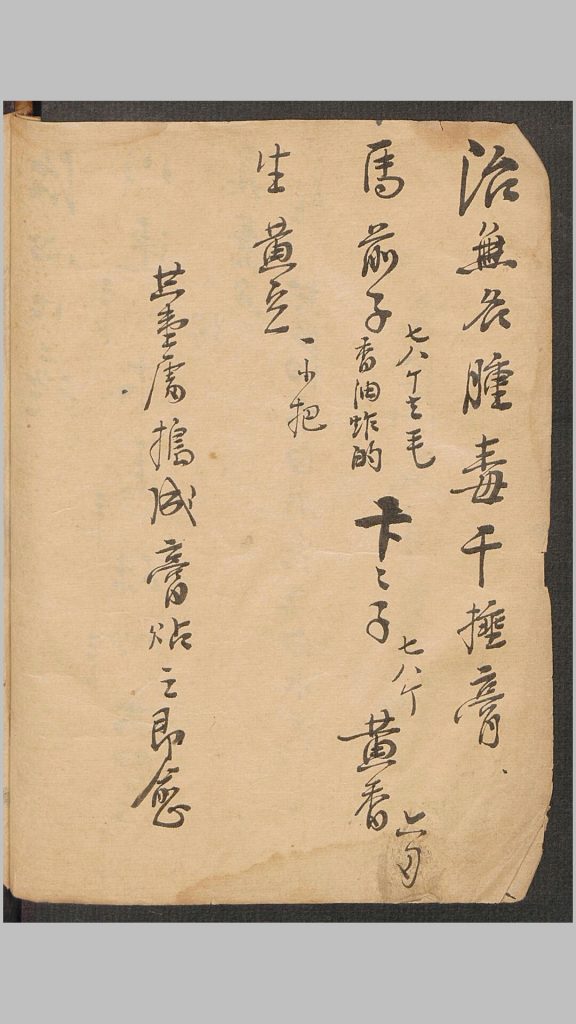 治無名腫毒千捶膏
馬前子
七八个去毛
香油炸的
卞〻子
七八个
黄香
生黄豆
一小把
共搗成膏貼之即愈